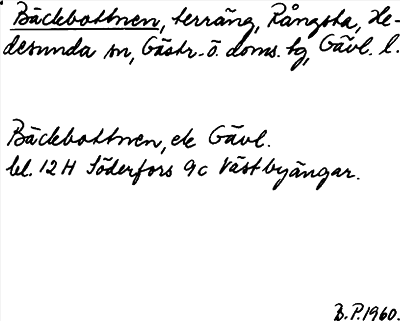 Bäckebottnen, terräng, Rångsta, He-
desunda sn, Gästr. ö. doms. tg, Gävl. l.
Bäckebottnen, ek Gävl.
bl. 12H Söderfors 9c Västbyängar.
B.P.1960.